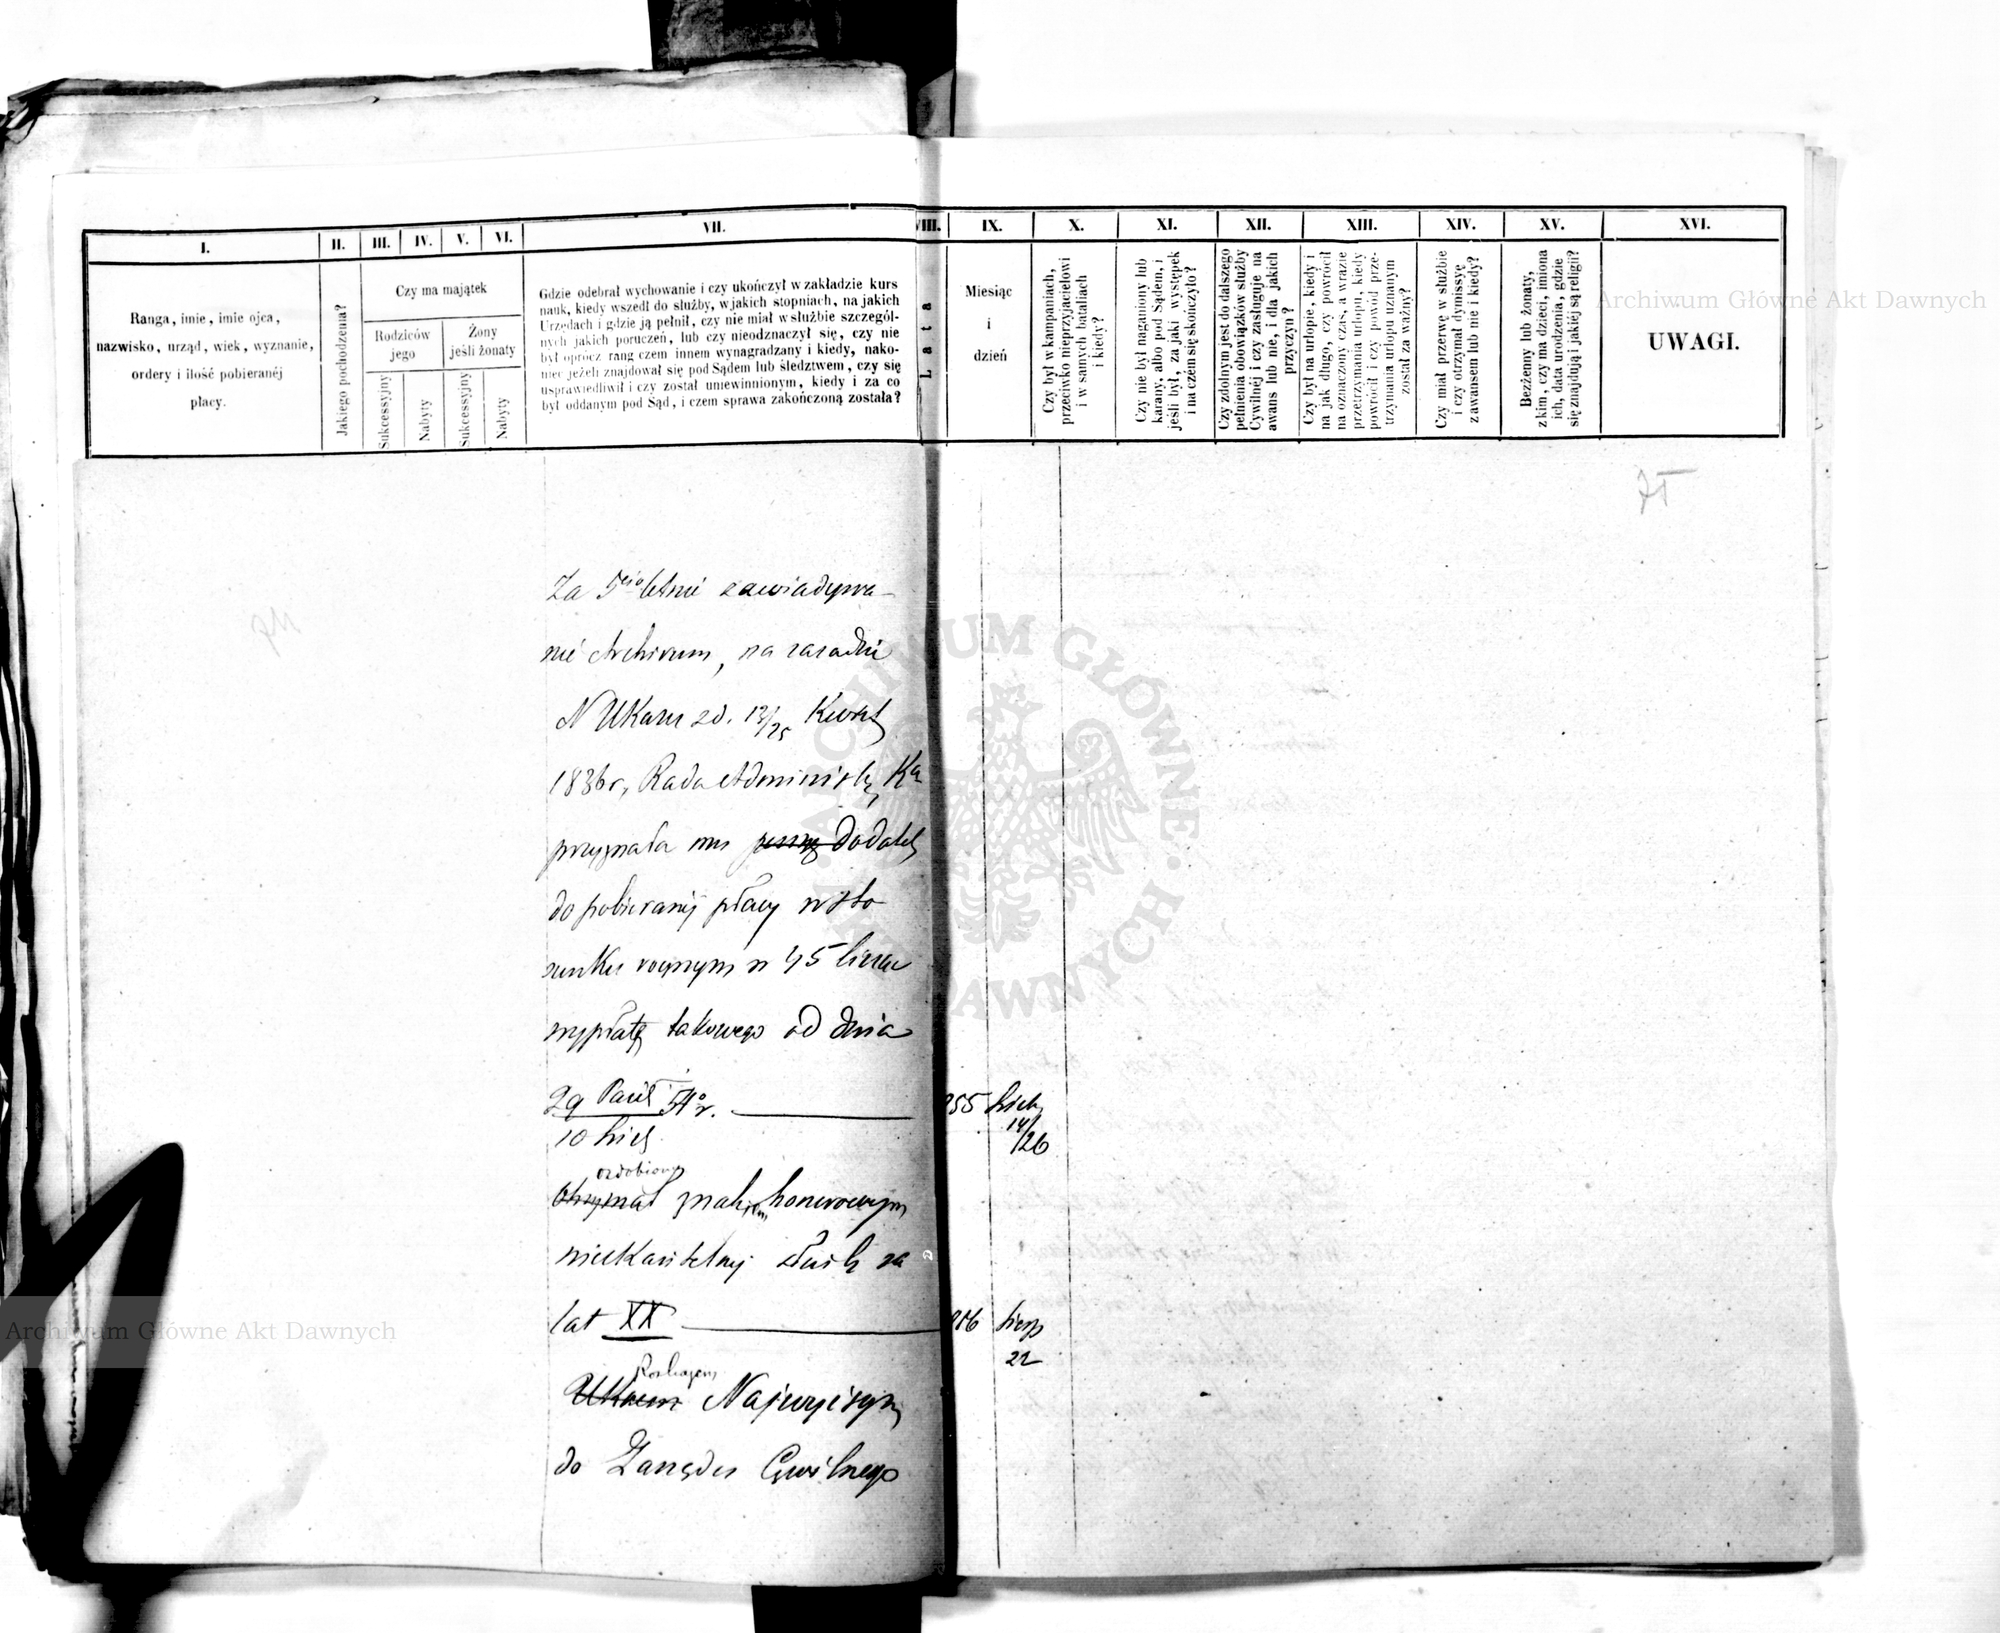 I. II. III. IV. V. VI. VII. VIII. IX. X. XI. XII. XIII. XIV. XV. XVI.
Ranga, imie, imie ojca,
nazwisko, urząd, wiek, wyznanie,
ordery i ilość pobieranéj
płacy.
Jakiego pochodzenia?
Czy ma majątek
Rodziców
jego
Żony
jeśli żonaty
Sukcessyjny
Nabyty
Sukcessyjny
Nabyty
Gdzie odebrał wychowanie i czy ukończył w zakładzie kurs
nauk, kiedy wszedł do służby, w jakich stopniach, na jakich
Urzędach i gdzie ją pełnił, czy nie miał w służbie szczegól-
nych jakich poruczeń, lub czy nieodznaczył się, czy nie
był oprócz rang czem innem wynagradzany i kiedy, nako-
niec jeżeli znajdował się pod Sądem lub śledztwem, czy się
usprawiedliwił i czy został uniewinnionym, kiedy i za co
był oddanym pod Sąd, i czem sprawa zakończoną została?
Lata
Miesiąc
i
dzień
Czy był w kampaniach,
przeciwko nieprzyjacielowi
i w samych bataliach
i kiedy?
Czy nie był naganiony lub
karany, albo pod Sądem, i
jeśli był, za jaki występek
i na czem się skończyło?
Czy zdolnym jest do dalszego
pełnienia obowiązków służby
Cywilnéj i czy zasługuje na
awans lub nie, i dla jakich
przyczyn?
Czy był na urlopie, kiedy i
na jak długo, czy powrócił
na oznaczony czas, a w razie
przetrzymania urlopu, kiedy
powrócił i czy powód prze-
trzymania urlopu uznanym
został za ważny?
Czy miał przerwę w służbie
i czy otrzymał dymissyę
z awansem lub nie i kiedy?
Bezżenny lub żonaty,
z kim, czy ma dzieci, imiona
ich, data urodzenia, gdzie
się znajdują i jakiéj są religii?
UWAGI.
Za 5cio letnie zawiadywa-
nie Archivum, na zasadzie
N Ukazu z d. 13/25 Kwiet
1836 r, Rada Administr, Ka
przyznała mu dodatek
do pobieranéj płacy w sto
sunku rocznym rs 45 licząc
wypłatę takowego od dnia
29 Paźd 54 r.
10 List
855
14/26
ozdobiony
Otrzymał znakiem honorowym
nieskazitelnéj służby za
lat XX
856 Sierp
22
Rozkazem
Ukazem Najwyższym
do Zarządu Cywilnego
Archiwum Główne Akt Dawnych
Archiwum Główne Akt Dawnych
ARCHIWUM GŁÓWNE AKT DAWNYCH